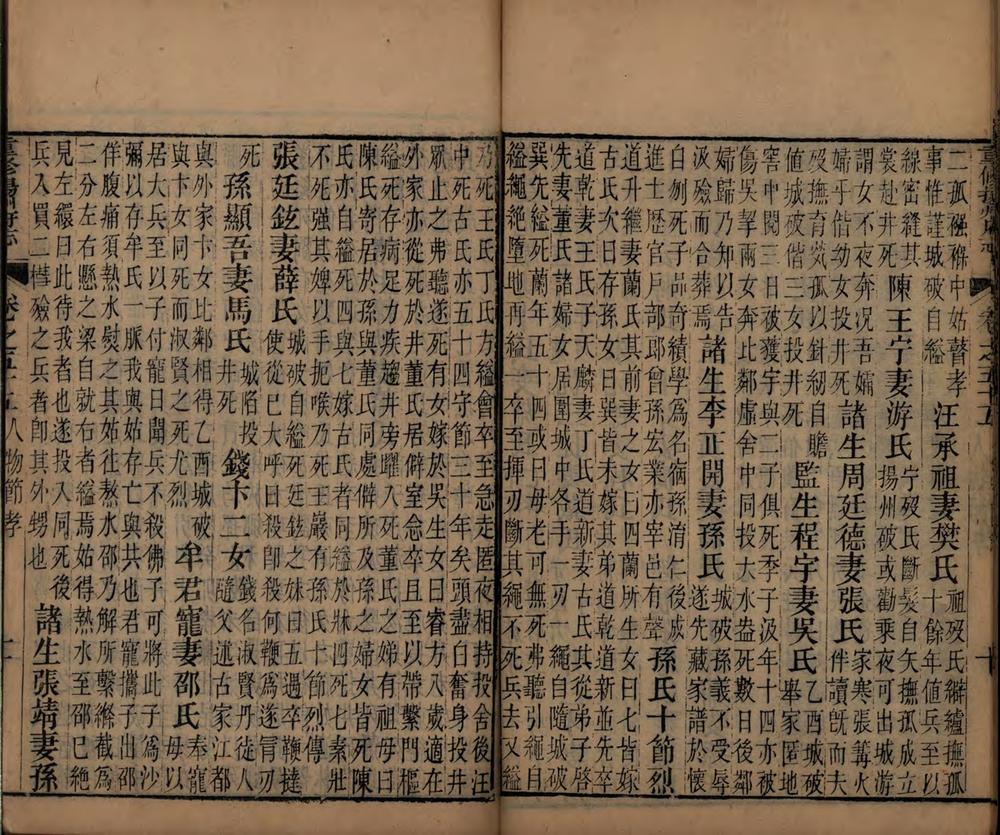 二孤稚穉中姑瞽孝
事惟謹城破自縊
汪承祖妻樊氏
祖歿氏辮纑撫孤
十餘年值兵至以
線密縫其
裳赴井死
陳王宁妻游氏
宁歿氏斷髮自矢撫孤成立
揚州破或勸乘夜可出城游
謂女不夜奔况吾孀
婦乎偕幼女投井死
諸生周廷德妻張氏
家寒張篝火
伴讀旣而夫
歿撫育煢孤以針紉自贍
值城破偕三女投井死
監生程宇妻吳氏
乙酉城破
舉家匿地
窖中閱三日破獲宇與二子俱死季子汲年十四亦被
傷吳挈兩女奔此鄰虛舍中同投大水盎死數日後鄰
婦歸乃知以告
汲殮而合葬焉
諸生李正開妻孫氏
城破孫義不受辱
遂先藏家譜於懷
白刎死子茆奇績學爲名宿孫淯仁後成
進士歷官戶部郎曾孫宏業亦宰邑有聲
孫氏十節烈
道升繼妻蘭氏其前妻之女曰四蘭所生女曰七皆嫁
古氏次曰存孫女曰巽皆未嫁其弟道乾道新並先卒
道乾妻王氏子天麟妻丁氏道新妻古氏其從弟子啓
先妻董氏諸婦女居圍城中各手一刃一繩自隨城破
巽先縊死蘭年五十四或曰母老可無死弗聽引繩自
縊繩絕墮地再縊一卒至揮刃斷其繩不死兵去又縊
乃死王氏丁氏方縊會卒至急走匿夜相持投舍後汪
中死古氏亦五十四守節三十年矣頭盡白奮身投井
眾止之弗聽遂死有女嫁於吳生女曰睿方八歲適在
外家亦從死於井董氏居僻室念卒且至以帶繫門樞
縊死存病足力疾趨井旁躍入死董氏之娣有祖母曰
陳氏寄居於孫與董氏同處僻所及孫之婦女皆死陳
氏亦自縊死四與七嫁古氏者同縊於牀四死七素壯
不死强其婢以手扼喉乃死王巖有孫氏十節烈傳
張廷鉉妻薛氏
城破自縊死廷鉉之妹曰五遇卒鞭撻
使從已大呼曰殺即殺何鞭爲遂冐刃
死
孫顯吾妻馬氏
城陷投
井死
錢卞二女
錢名淑賢丹徒人
隨父逃古家江都
與外家卞女比鄰相得乙酉城破
與卞女同死而淑賢之死尤烈
牟君寵妻邵氏
奉寵
母以
居大兵至以子付寵曰聞兵不殺佛子可將此子爲沙
彌以存牟氏一脈我與姑存亡與共也君寵攜子出邵
佯腹痛須熱水熨之其姑往熬水邵乃解所繫縧截爲
二分左右懸之梁自就右者縊焉姑得熱水至邵已絕
見左繯曰此待我者也遂投入同死後
兵入買二槥殮之兵者即其外甥也
諸生張靖妻孫
重修揚州府志
卷之五十五 人物節孝
十一